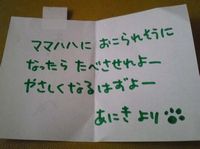 ママハハに おこられそうに
なったら たべさせれよー
やさしくなるはずよー
あにきより